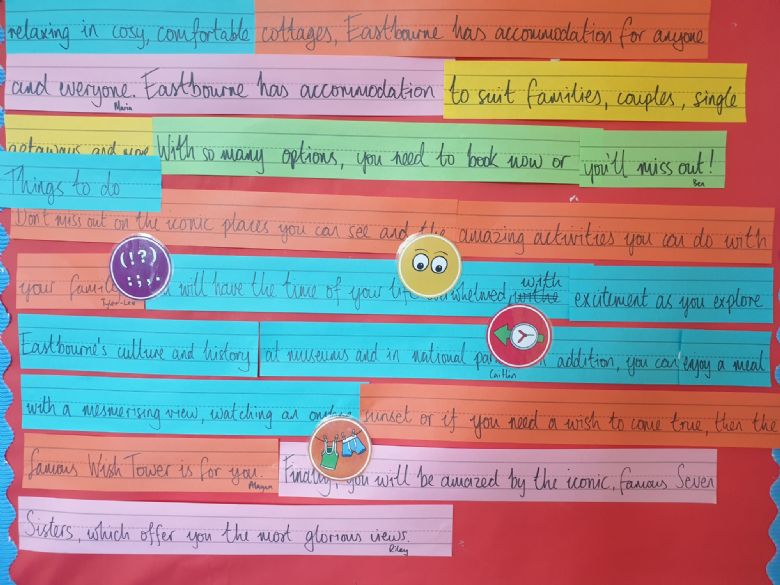 relaxing in cosy, comfortable cottages, Eastbourne has accommodation for anyone
and everyone. Eastbourne has accommodation to suit families, couples, single
Maria
getaways and more With so many options, you need to book now or you'll miss out!
Ben
Things to do
Don't miss out on the iconic places you can see and the amazing activities you can do with
your will have the time of your life overwhelmed, with excitement as you explore
(!?) :;,.
Eastbourne's culture and history at museums and in national addition, you can enjoy a meal
Caitlan
with a mesmerising view, watching an sunset or if you need a wish to come true, then the
famous Wish Tower is for you. Finally, you will be amazed by the iconic, famous Seven
Sisters, which offer you the most glorious views.
Riley